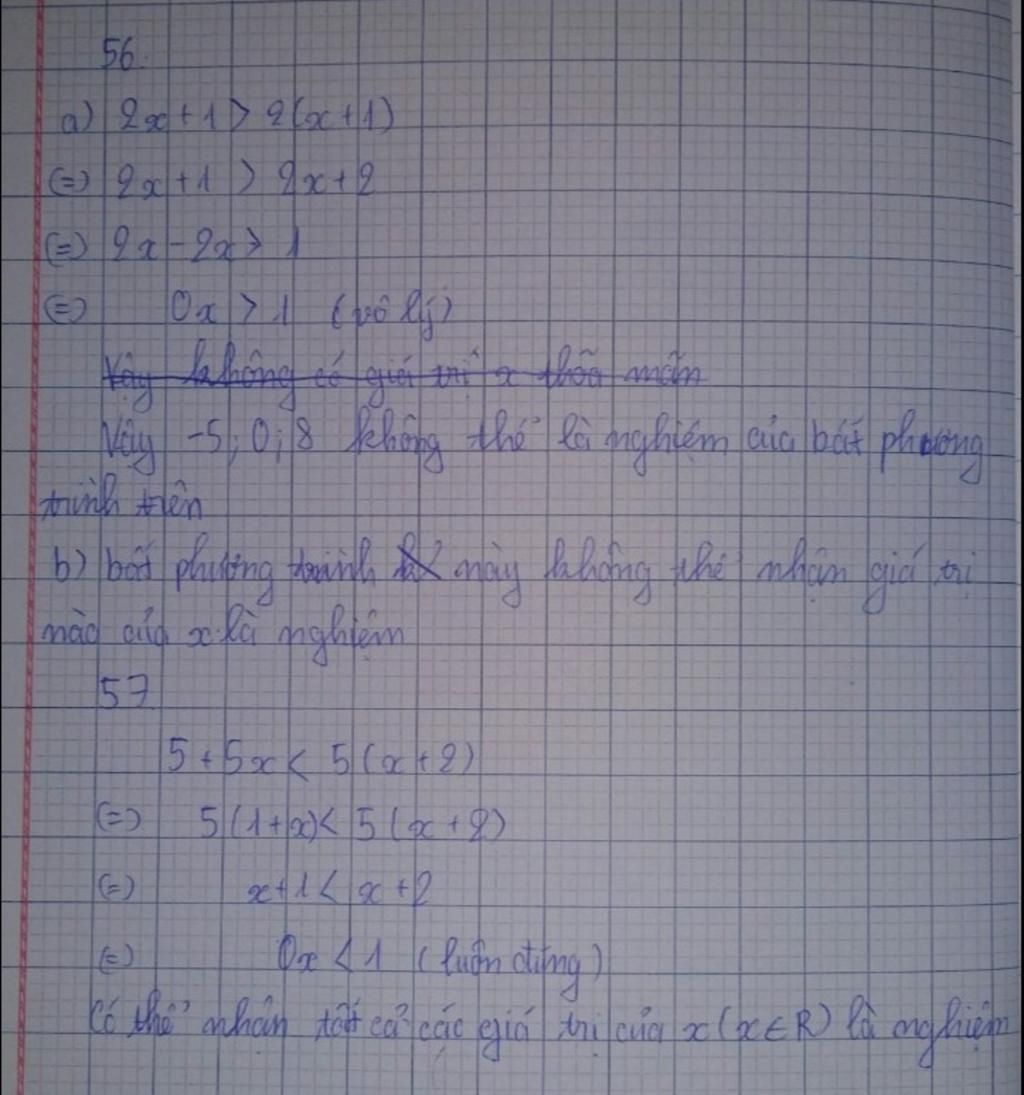 56.
a) 2x + 1 > 2(x+1)
(=) 2x + 1 > 2x + 2
(=) 2x - 2x > 1
(=) 0x > 1 (vô lý)
Vậy không có giá trị x thõa mãn
Vậy -5; 0; 8 không thể là nghiệm của bất phương
trình trên
b) bất phương trình này không thể nhận giá trị
nào của x là nghiệm
57
5 + 5x < 5(x+2)
(=) 5(1+x) < 5(x+2)
(=) x+1 < x+2
(=) 0x < 1 (luôn đúng)
Có thể nhận tất cả các giá trị của x (x ∈ R) là nghiệm